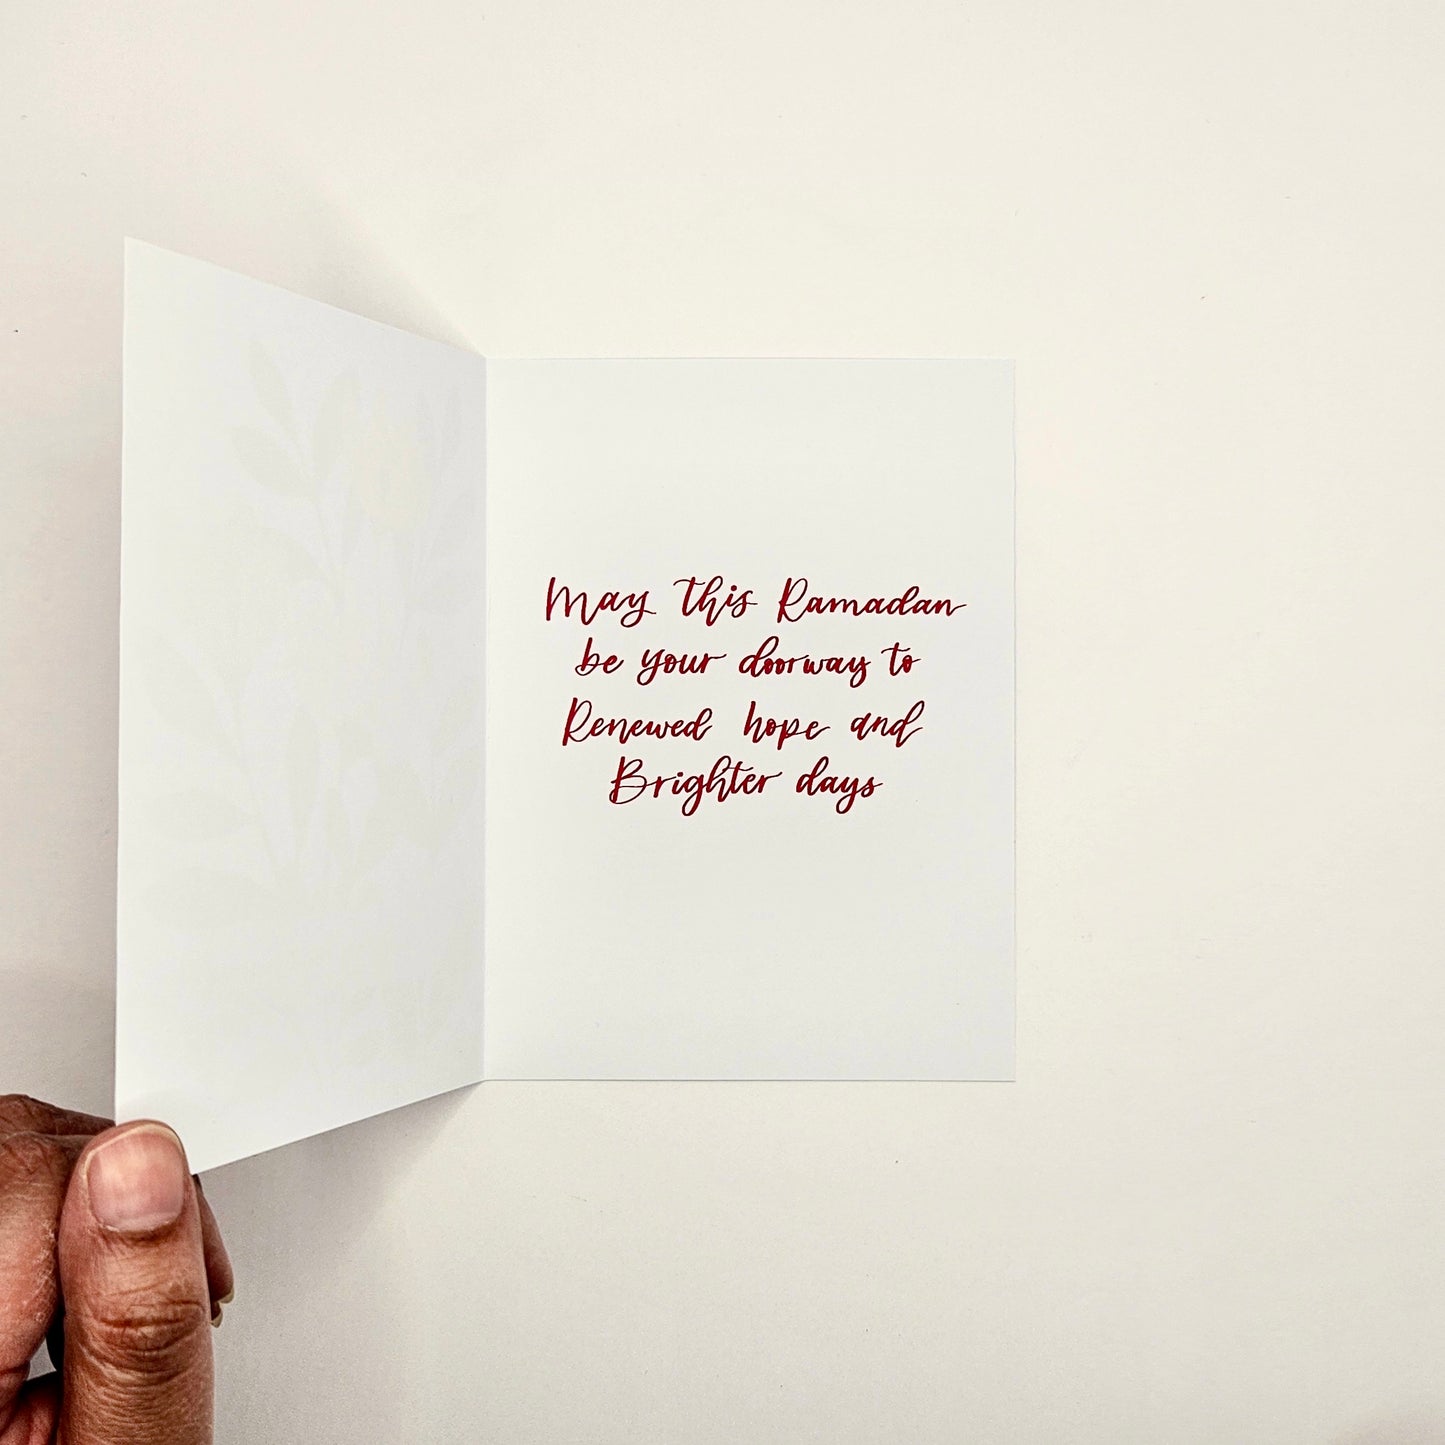 May this Ramadan
be your doorway to
Renewed hope and
Brighter days